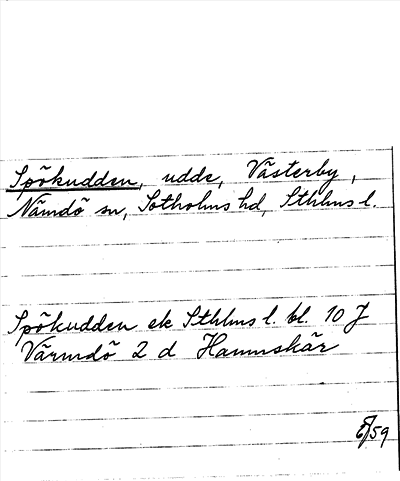 Spökudden, udde, Västerby,
Nämdö sn, Sotholms hd, Sthlms l.
Spökudden ek Sthlms l. bl. 10 J
Värmdö 2 d Hamnskär